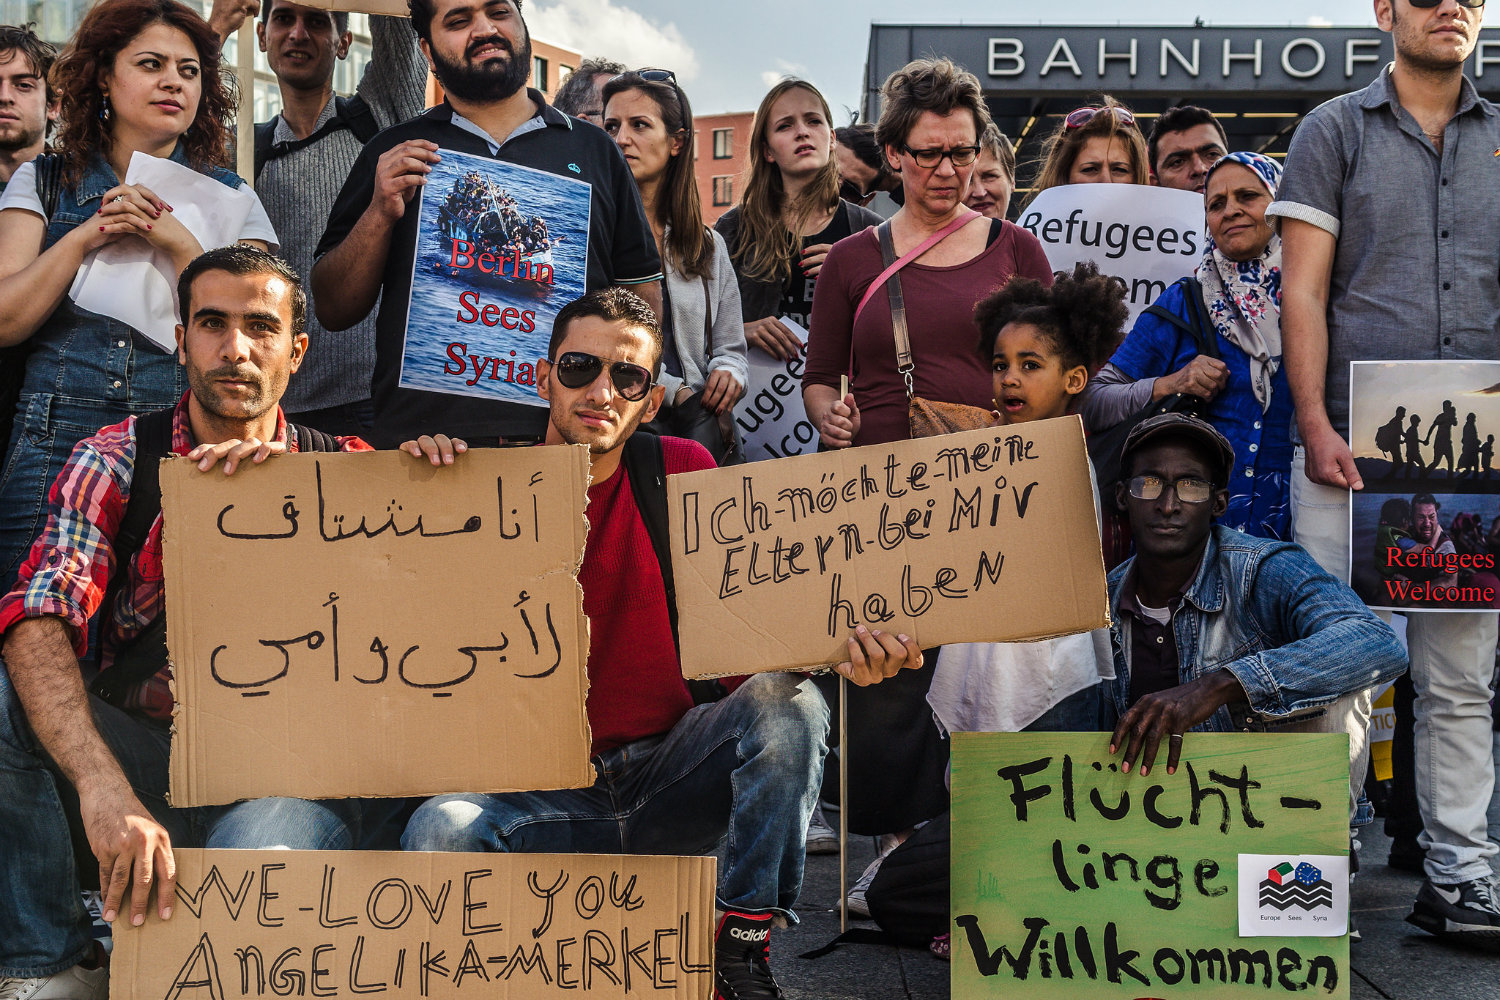 BAHNHOF
Berlin
Sees
Syria
Refugees
Refugees
Welcome
أنا مشتاق
لأبي وأمي
Ich-möchte-meine
Eltern-bei Mir
haben
WE-LOVE you
ANGELIKA-MERKEL
Flücht-
linge
Willkommen
Europe Sees Syria
adidas